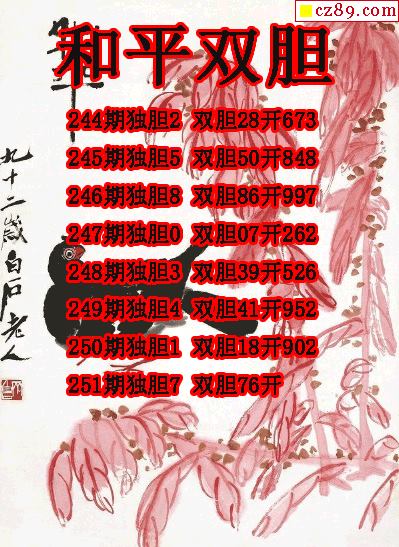 cz89.com
和平双胆
244期独胆2 双胆28开673
245期独胆5 双胆50开848
246期独胆8 双胆86开997
247期独胆0 双胆07开262
248期独胆3 双胆39开526
249期独胆4 双胆41开952
250期独胆1 双胆18开902
251期独胆7 双胆76开
九十二岁白石老人